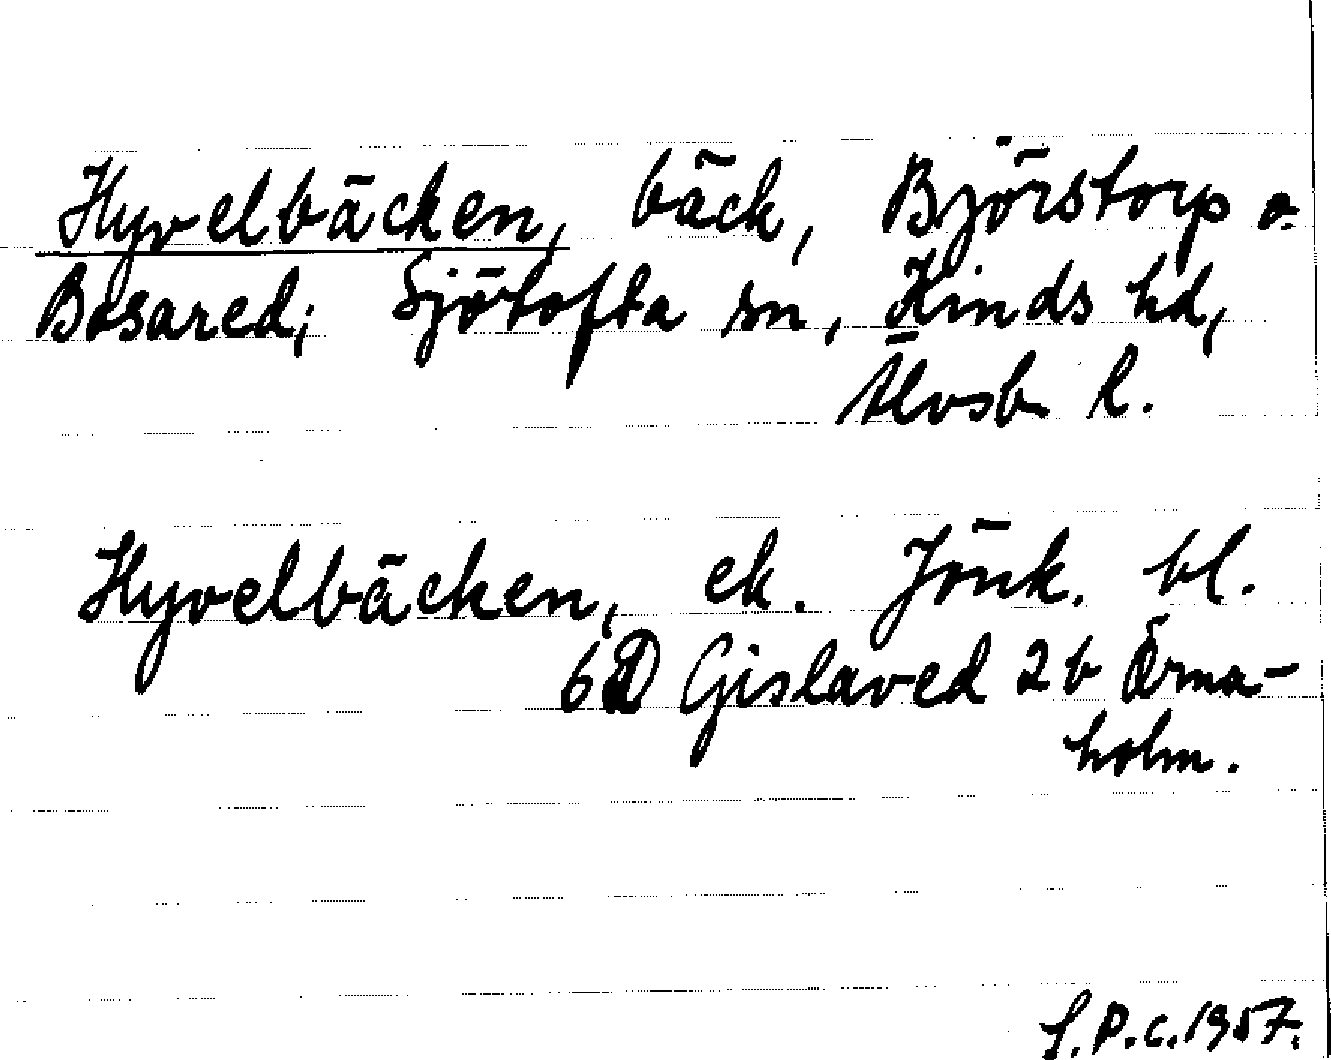 Hyvelbäcken, bäck, Björstorp o.
Bosared; Sjötofta sn, Kinds hd,
Älvsb. l.
Hyvelbäcken, ek. Jönk. bl.
6D Gislaved 2b Örma-
holm.
S.P.c. 1957.